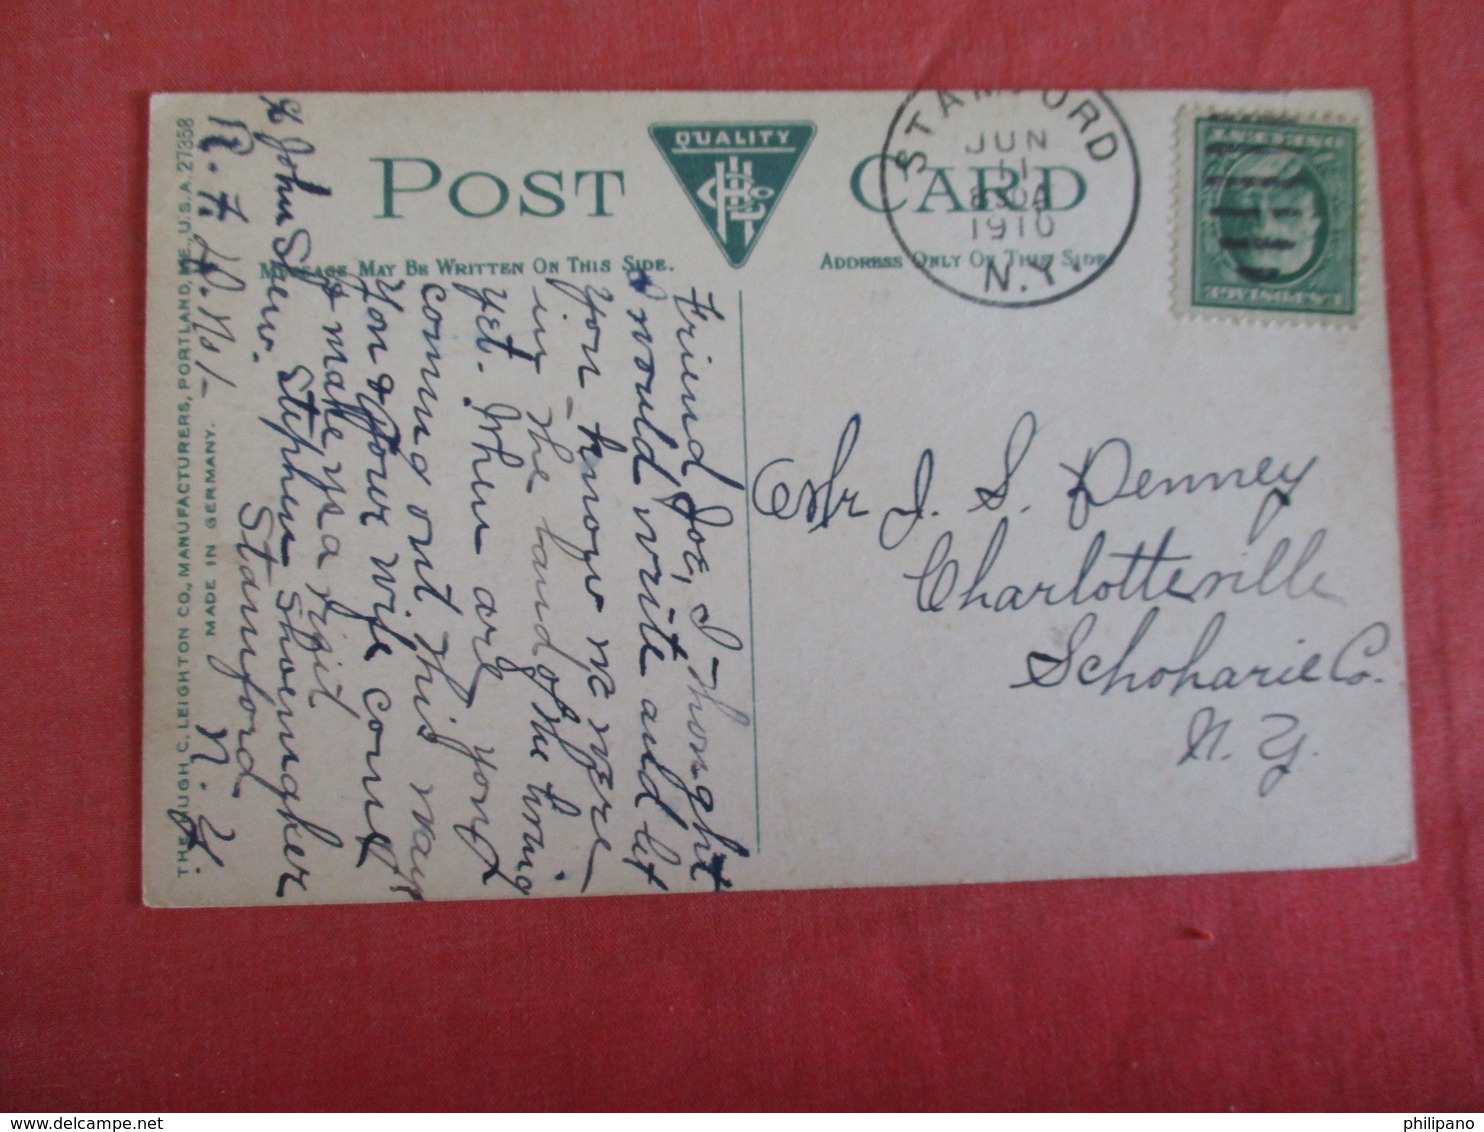 POST CARD
QUALITY
HLCo
MESSAGE MAY BE WRITTEN ON THIS SIDE.
ADDRESS ONLY ON THIS SIDE
STAMFORD
JUN
11
830A
1910
N.Y.
U.S. POSTAGE
ONE CENT
Friend Joe, I thought
I would write and let
you know we were
in the land of the living
yet. When are you
coming out this way
You & your wife come
& make us a visit
Stephen Shoemaker
Stamford
N.Y.
% John Snew.
R. F. D. No 1-
Mr J. S. Denney
Charlotteville
Schoharie Co.
N. Y.
THE HUGH C. LEIGHTON CO., MANUFACTURERS, PORTLAND, ME., U.S.A. 27358
MADE IN GERMANY.
philipano